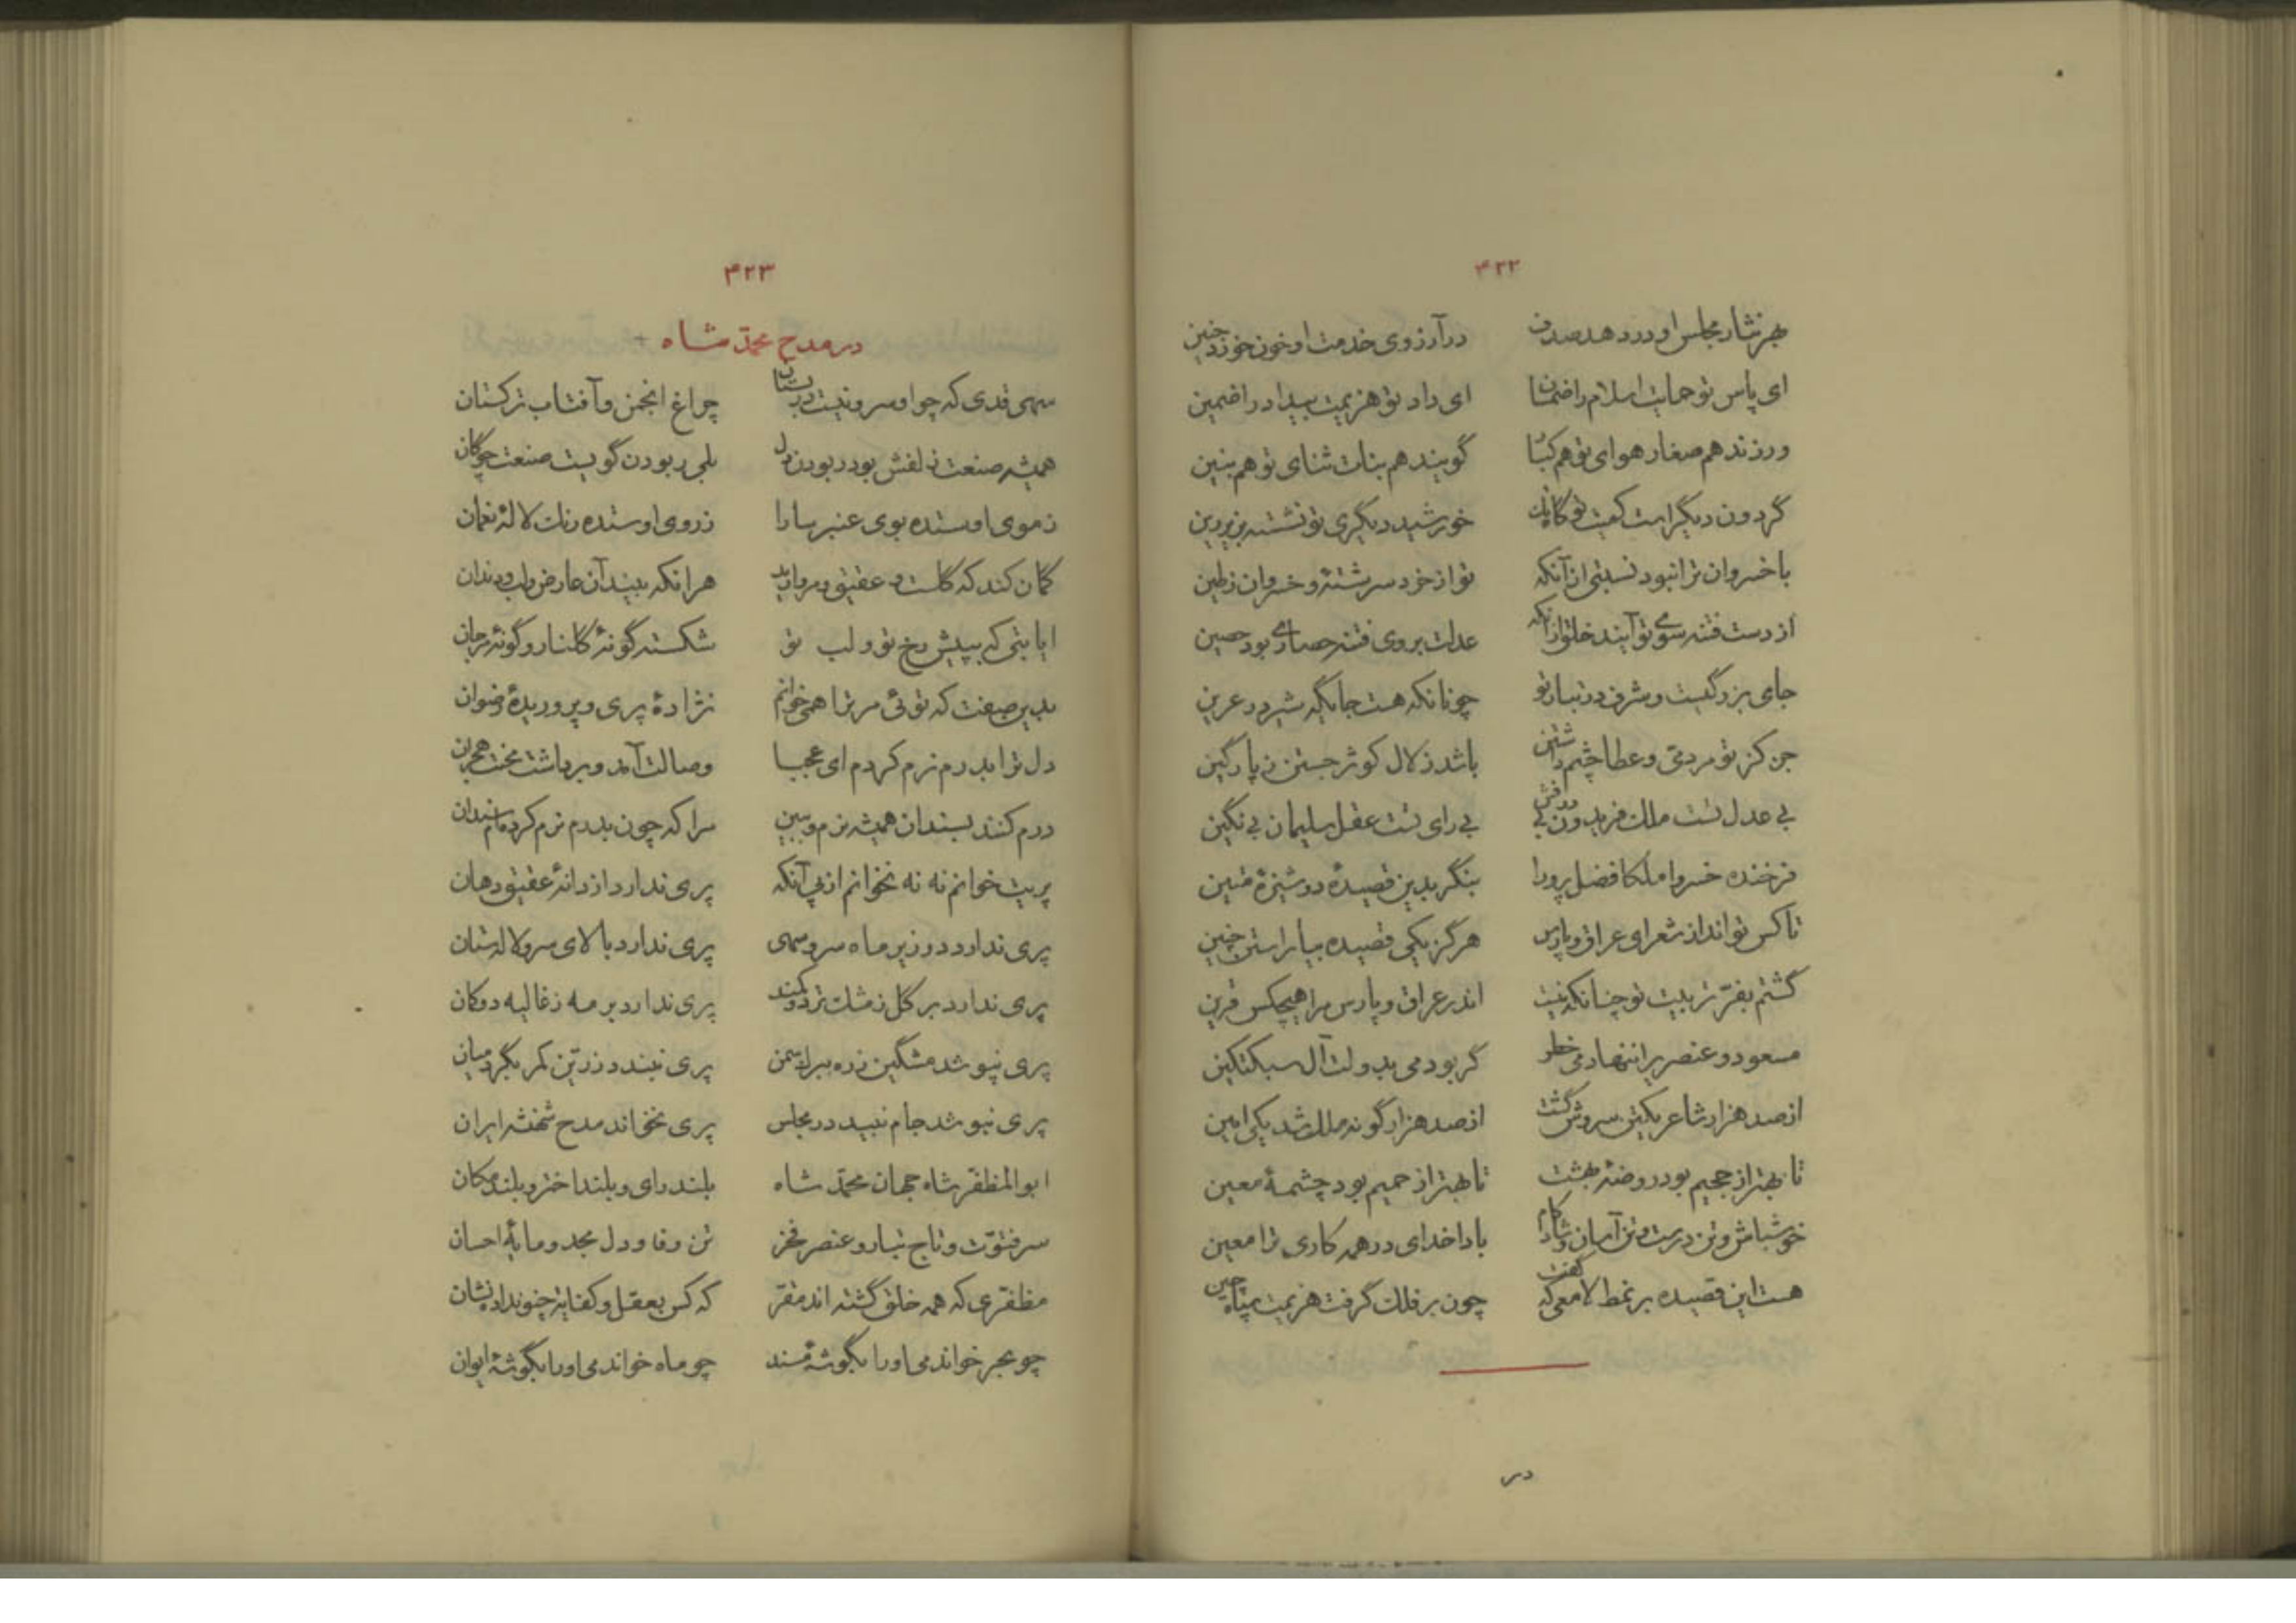 ۴۲۲
بهر نثار مجلس او در دهد صدف درآرزوی خدمت او خون خورد جنین
ای پاس تو حمایت اسلام را ضمان ای داد تو هزیمت بیداد را ضمین
ورزند هم صغار هوای تو هم کبار گویند هم بنات ثنای تو هم بنین
گردون دیگر است کمیت تو خورشید دیگری تو نشسته بزبر زین
با خسروان ترا نبود نسبتی از آنکه تو از خرد سرشتهٔ و خسروان ز طین
از دست فتنه سوی تو آیند خلق ازانکه عدلت بروی فتنه حصاری بود حصین
جای بزرگیست و شرف در تبار تو چونانکه هست جایگه شیر در عرین
جز کز تو مردمی و عطا چشم داشتن باشد زلال کوثر جستن ز پارگین
بی عدل تست ملک فریدون بی درفش بی رای تست عقل سلیمان بی نگین
فرخنده خسروا ملکا فضل پرورا بنگر بدین قصیدهٔ دوشیزهٔ متین
تا کس تواند از شعرای عراق و پارس هرگز یکی قصیده بیاراستن چنین
گشتم بفرّ تربیت تو چنانکه نیست اندر عراق و پارس مرا هیچکس قرین
مسعود و عنصریرا ننهادمی خطر گر بودمی بدولت آل سبکتکین
از صد هزار شاعر یکتن سروش گشت از صد هزار گونه ملک شد یکی امین
تا بهتر از جحیم بود روضهٔ بهشت تا بهتر از حمیم بود چشمهٔ معین
خوش باش و تن درست و تن آسان و شادکام بادا خدای در همه کاری ترا معین
هست این قصیده بر نمط لامعی که گفت چون بر فلک گرفت هزیمت سپاه چین
در
۴۲۳
در مدح محمّد شاه
سهی قدی که چو او سرو نیست در بستان چراغ انجمن و آفتاب ترکستان
همیشه صنعت زلفش بود ربودن دل بلی ربودن گویست صنعت چوگان
ز موی او ستده بوی عنبر سارا ز روی او ستده رنگ لالهٔ نعمان
گمان کند که گلست و عقیق و مروارید هر انکه بیند آن عارض و لب و دندان
ایا بتی که بپیش رخ تو و لب تو شکسته گونهٔ گلنار و گونهٔ مرجان
بدین صفت که توئی مر ترا همی خوانم نژادهٔ پری و پروریدهٔ رضوان
دل ترا بدرم نرم کردم ای عجبا وصالت آمد و برداشت سختی هجران
درم کنند بسندان همیشه نرم و ببین مرا که چون بدرم نرم کرده‌ام سندان
پریت خوانم نه نه نخوانم از پی آنکه پری ندارد از دانهٔ عقیق دهان
پری ندارد در زیر ماه سرو سهی پری ندارد بالای سرو لاله ستان
پری ندارد بر گل ز مشک تر دو کمند پری ندارد بر مه ز غالیه دو کمان
پری نپوشد مشگین زره ببرگ سمن پری نبندد زرّین کمر بگرد میان
پری ننوشد جام نبید در مجلس پری نخواند مدح شهنشه ایران
ابوالمظفّر شاه جهان محمّد شاه بلند رای و بلند اختر و بلند مکان
سر فتوّت و تاج تبار و عنصر فخر تن وفا و دل مجد و مایهٔ احسان
مظفّری که همه خلق گشته اند مقر که کس بعقل و کفایت چنو نداد نشان
چو بحر خواندمی او را بگوشهٔ مسند چو ماه خواندمی او را بگوشهٔ ایوان